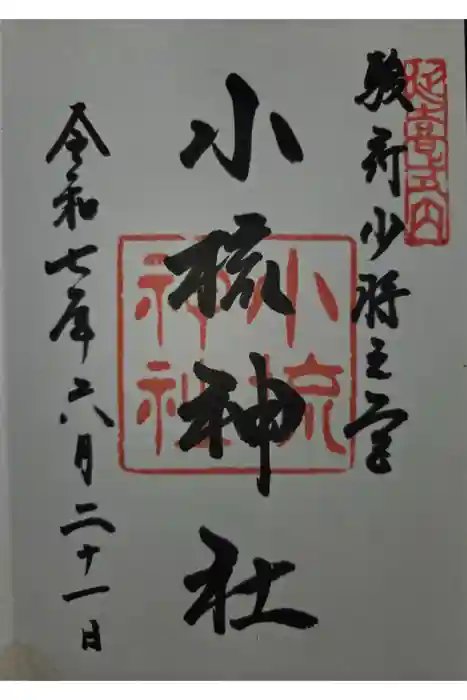 延喜式内
駿府少将之宮
小梳神社
小梳
神社
令和七年六月二十一日